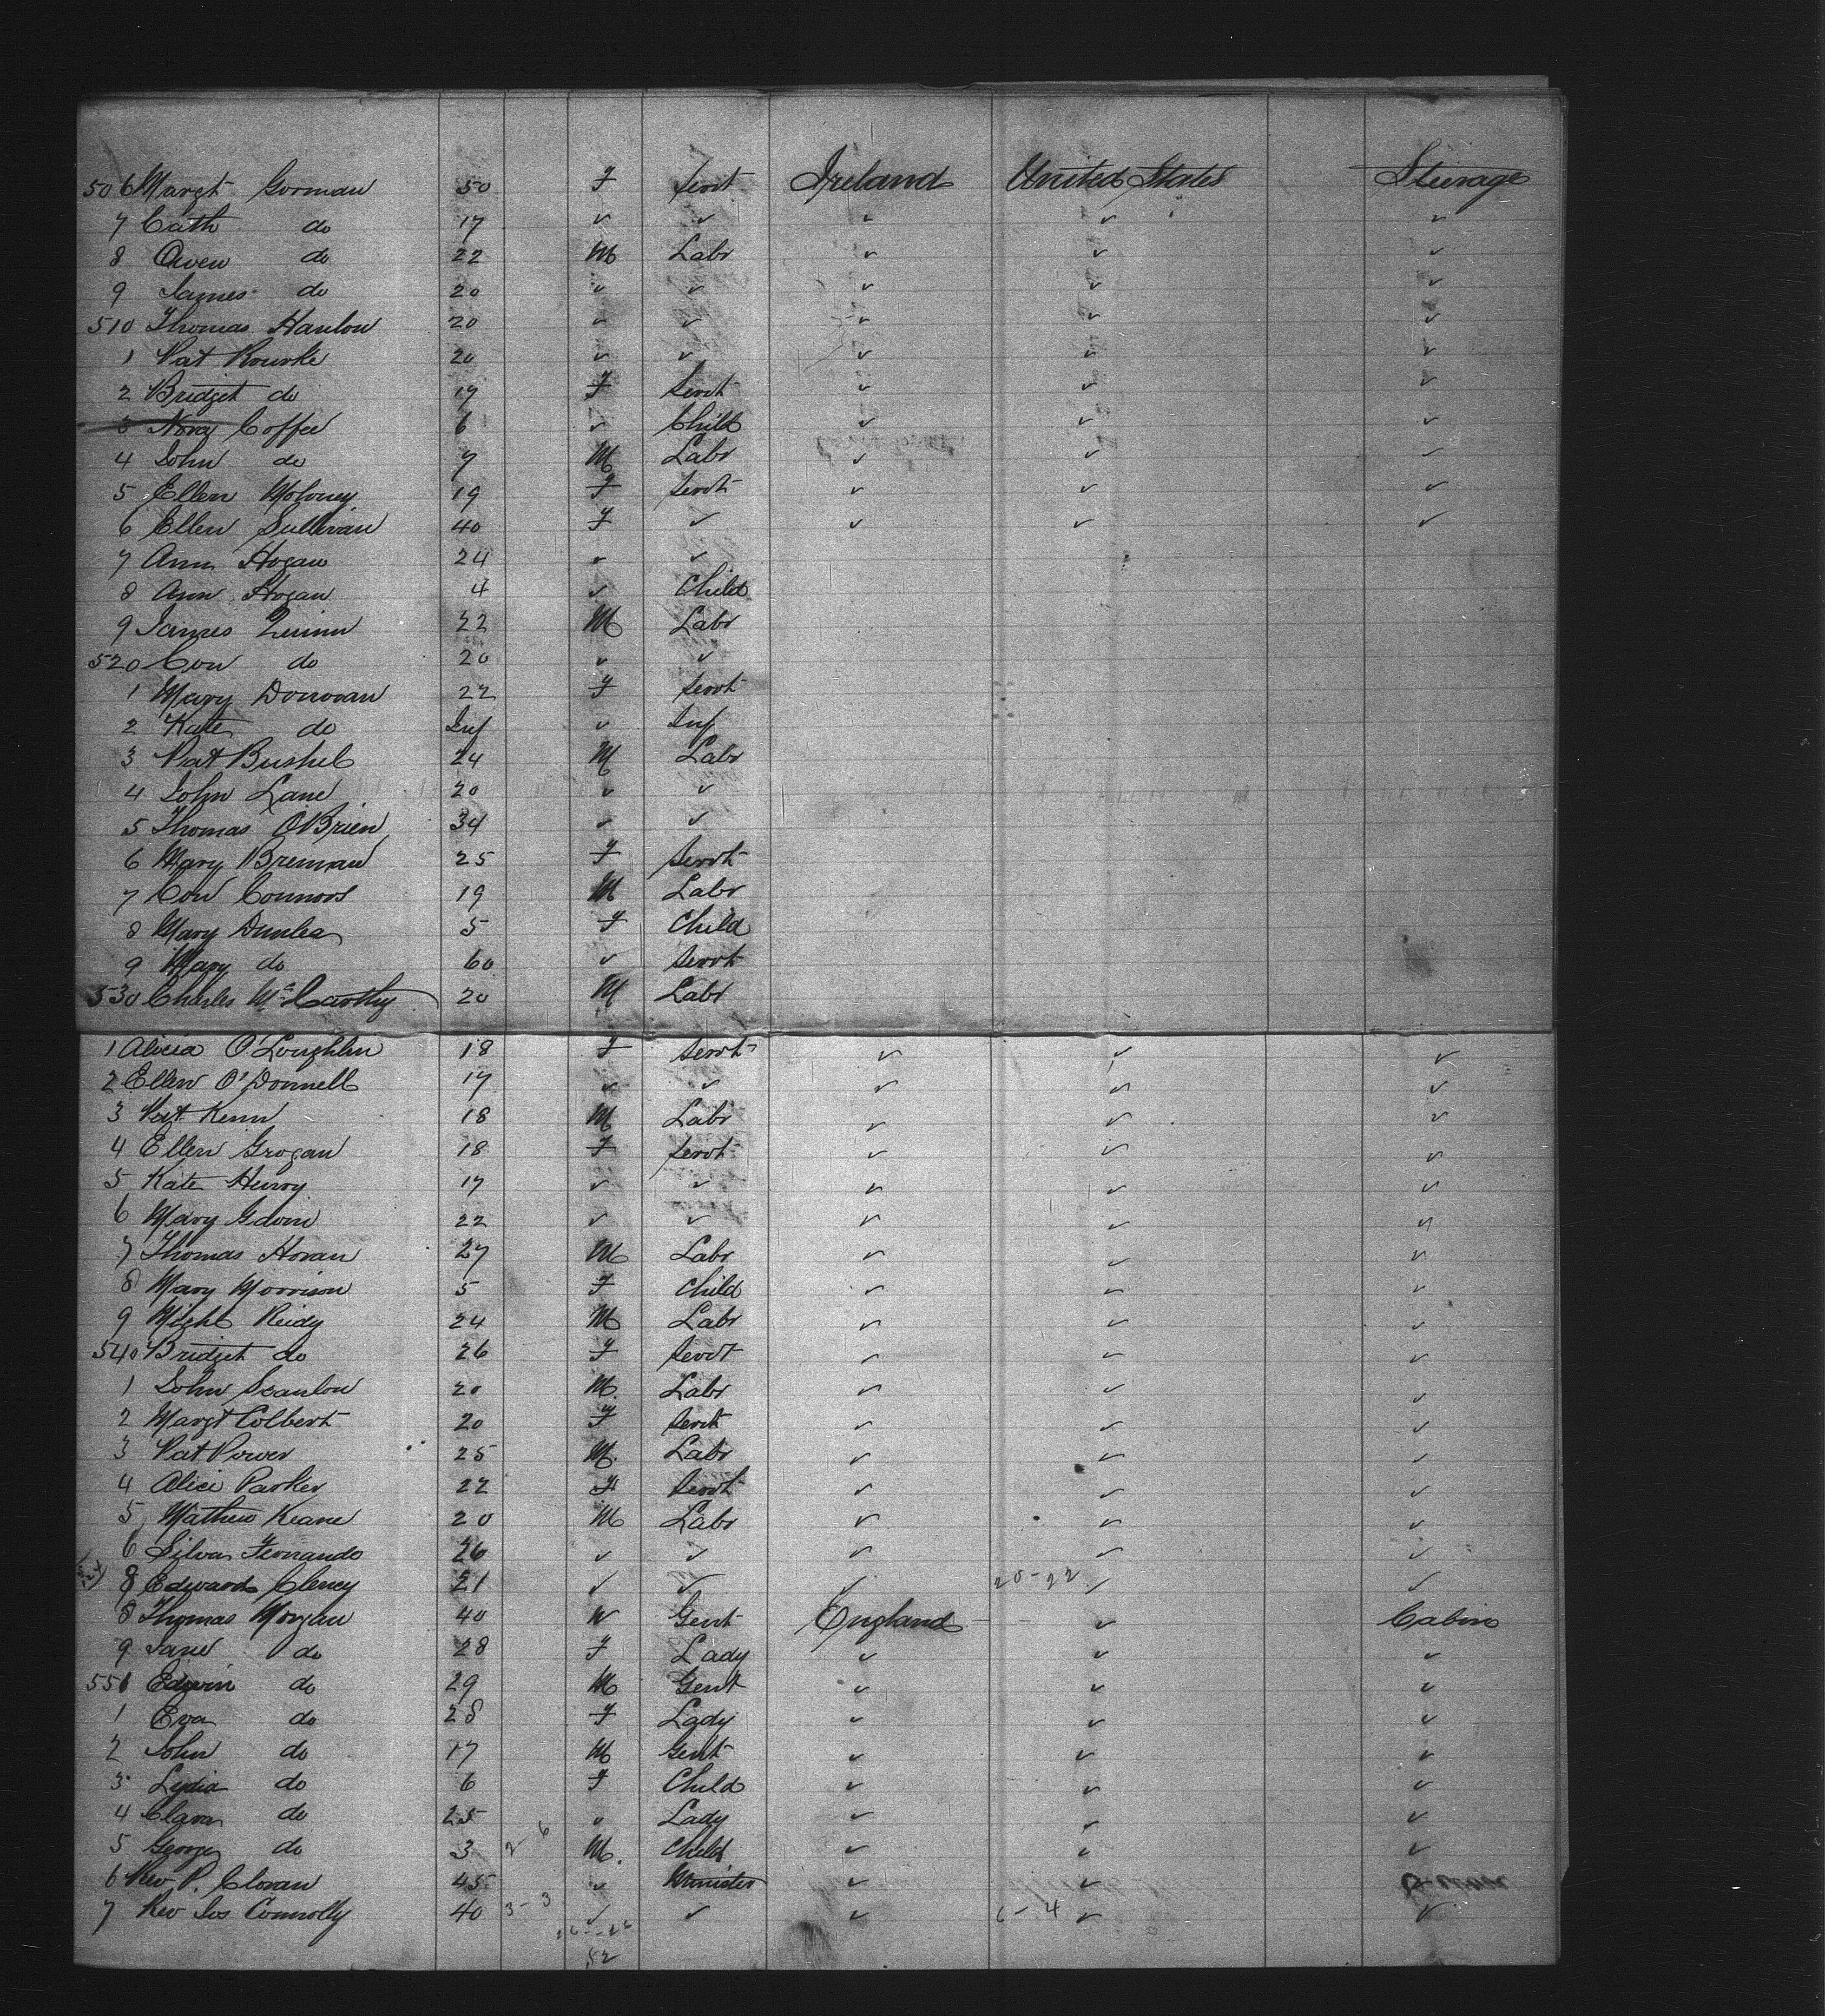 506 Margt Gorman 50 F Servt Ireland United States Steerage
7 Cath do 17 " " " " "
8 Owen do 22 M Labr " " "
9 James do 20 " " " " "
510 Thomas Hanlon 20 " " " " "
1 Pat Rourke 20 " " " " "
2 Bridget do 17 F Servt " " "
3 Nory Coffee 6 " Child " " "
4 John do 7 M Labr " " "
5 Ellen Moloney 19 F Servt " " "
6 Ellen Sullivan 40 F " " " "
7 Ann Hogan 24 " "
8 Ann Hogan 4 " Child
9 James Quinn 22 M Labr
520 Con do 20 " "
1 Mary Donovan 22 F Servt
2 Kate do Inf " Inf
3 Pat Bushel 24 M Labr
4 John Lane 20 " "
5 Thomas O'Brien 34 " "
6 Mary Brennan 25 F Servt
7 Con Connors 19 M Labr
8 Mary Dunlea 5 F Child
9 Mary do 60 " Servt
530 Charles McCarthy 20 M Labr
1 Alicia O'Loughlin 18 F Servt " " "
2 Ellen O'Donnell 17 " " " " "
3 Pat Kenn 18 M Labr " " "
4 Ellen Grogan 18 F Servt " " "
5 Kate Henry 17 " " " " "
6 Mary 22 " " " " "
7 Thomas Horan 27 M Labr " " "
8 Mary Morrison 5 F Child " " "
9 Michl Reidy 24 M Labr " " "
540 Bridget do 26 F Servt " " "
1 John Scanlon 20 M. Labr " " "
2 Margt Colbert 20 F Servt " " "
3 Pat Power 25 M. Labr " " "
4 Alice Parker 22 F Servt " " "
5 Mathew Keane 20 M Labr " " "
6 Silva Fernando 26 " " " " "
8 Edward Clency 21 " " " 20-22 " "
8 Thomas Morgan 40 M Gent England " Cabin
9 Jane do 28 F Lady " " "
551 Edwin do 29 M Gent " " "
1 Eva do 28 F Lady " " "
2 John do 17 M Gent " " "
3 Lydia do 6 F Child " " "
4 Clara do 25 " Lady " " "
5 George do 3 2 6 M. Child " " "
6 Rev P. Cloran 45 " Minister " "
7 Rev Jos Connolly 40 3-3 " " " 6-4 " "
52